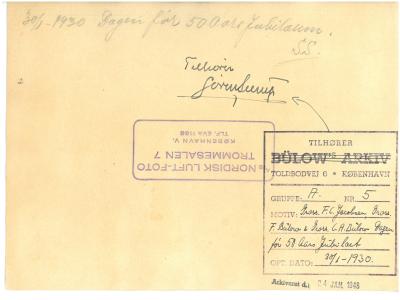 30/1-1930 Dagen før 50 Aars Jubilæum.
S.S.
Tilhører
A/S NORDISK LUFT-FOTO
TROMMESALEN 7
KØBENHAVN V.
TLF. EVA 1168
TILHØRER
BÜLOW'S ARKIV
TOLDBODVEJ 6 • KØBENHAVN
GRUPPE: A. NR. 5
MOTIV: Gross. F.C. Jacobsen, Gross.
F. Bülow & Gross. C.A. Bülow Dagen
før 50 Aars Jubilæet
OPT. DATO: 30/1-1930.
Arkiveret d.: 24 JAN. 1948